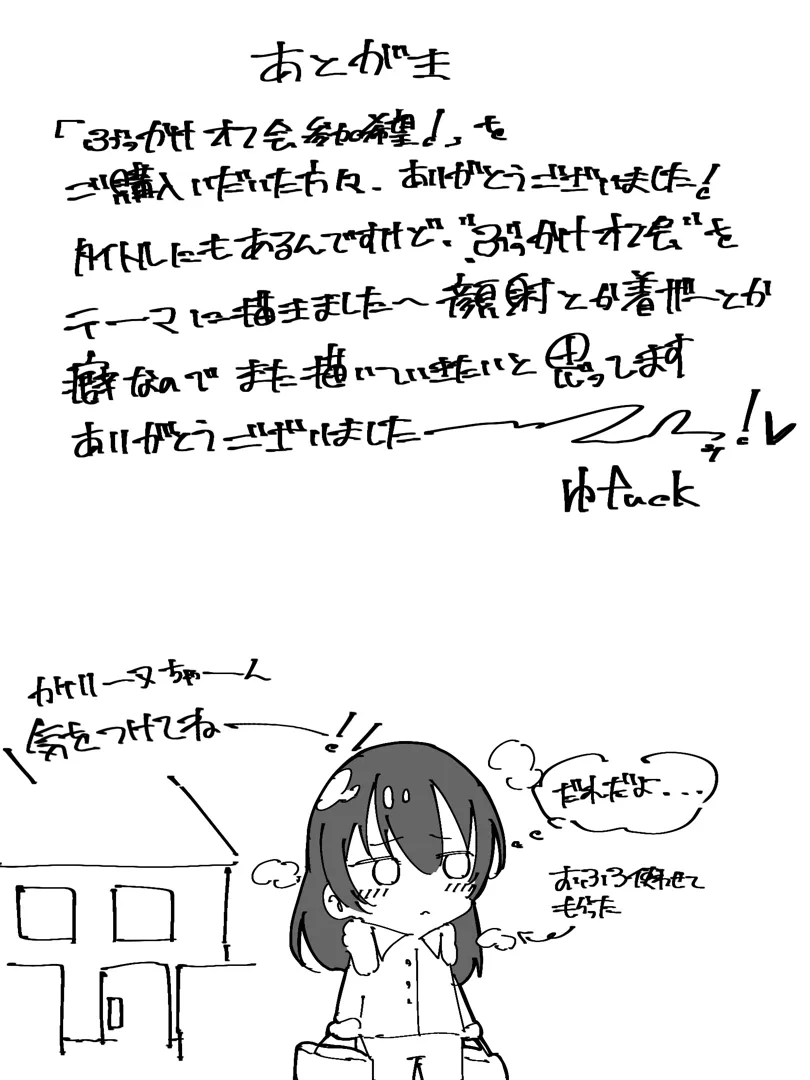 あとがき
「ぶっかけオフ会参加希望!」を
ご購入いただいた方々、ありがとうございました!
タイトルにもあるんですけど、"ぶっかけオフ会"を
テーマに描きました〜顔射とか着衣とか
癖なのでまた描いていきたいと思ってます
ありがとうございました!
ゆtuck
カケリーヌちゃーん
気をつけてね!!
だれだよ...
おふろ使わせて
もらった